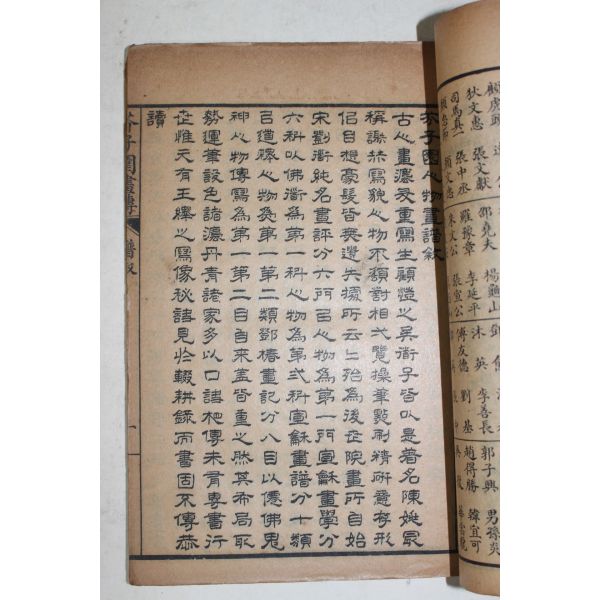 芥子園人物畫譜敘
古之畫法最重寫生顧愷之吳衜子皆以是著名陳姚最
稱謝赫寫貌人物不須對相弌覽操筆點刷精研意存形
侶目想豪髮皆無遺失據所云上殆為後世院畫所自始
宋劉衜純名畫評分六門㠯人物為第一門宣龢畫學分
六科以佛衜為第一科人物為第弍科宣龢畫譜分十類
㠯道釋人物為第一第二類鄧椿畫記分八目以僊佛鬼
神人物傳寫為第一第二目自來蓋皆重之然其布局取
勢運筆設色諳濃丹青諸家多以口語相傳未有專書行
世惟元有王繹之寫像秘訣見於輟耕錄而書固不傳恭
讀
芥子園畫傳
譜敘
一
顧虎頭
狄文惠 張文獻
司馬真一 張中丞
顏文忠
鄒堯夫 楊龜山
羅豫章 李延平
朱文公 張宣公
沐英 李善長
傅友德 劉基
郭子興 男孫炎
趙得勝 韓宜可